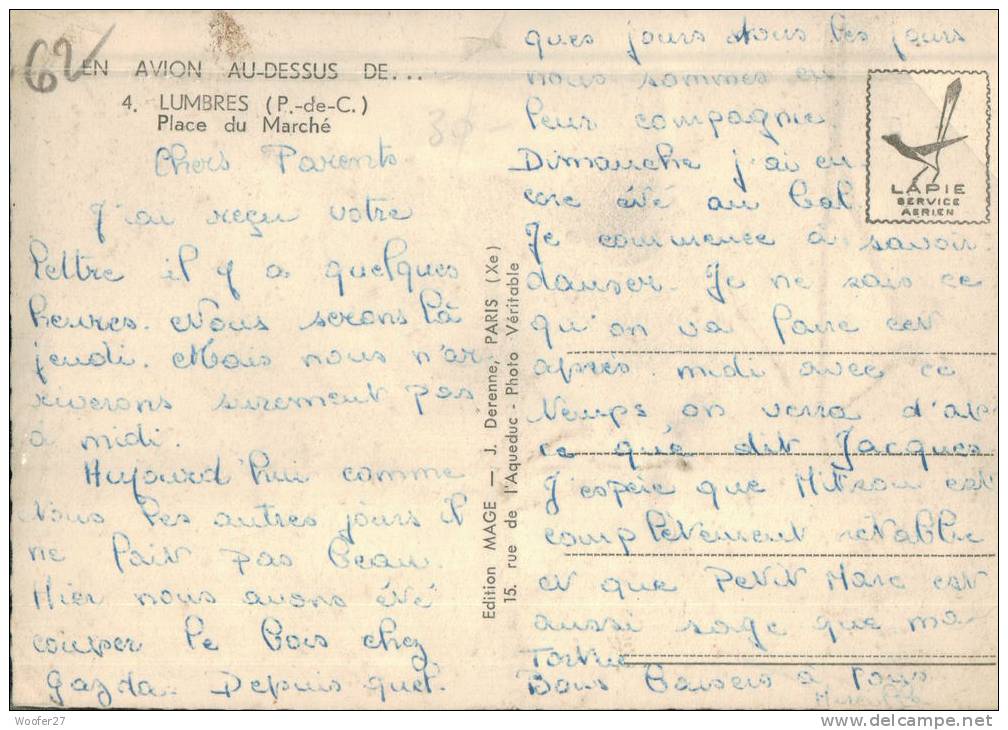 62
EN AVION AU-DESSUS DE...
4. LUMBRES (P.-de-C.)
Place du Marché
30-
Chers Parents
J'ai reçu votre
lettre il y a quelques
heures. Nous serons là
jeudi. Mais nous n'ar
riverons surement pas
à midi.
Aujourd'hui comme
tous les autres jours il
ne fait pas beau.
Hier nous avons été
couper le bois chez
Gazda. Depuis quel-
Edition MAGE — J. Derenne, PARIS (Xe)
15, rue de l'Aqueduc - Photo Véritable
ques jours tous les jours
nous sommes en
leur compagnie
Dimanche j'ai en
core été au bal.
Je commence à savoir
danser. Je ne sais ce
qu'on va faire cet
après-midi avec ce
temps on verra d'ap
ce que dit Jacques
J'espère que Mitzou est
complètement rétablie
et que Petit Marc est
aussi sage que ma
Tortue
Bons baisers à tous
LAPIE
SERVICE
AERIEN
Woofer27
http://www.delcampe.net